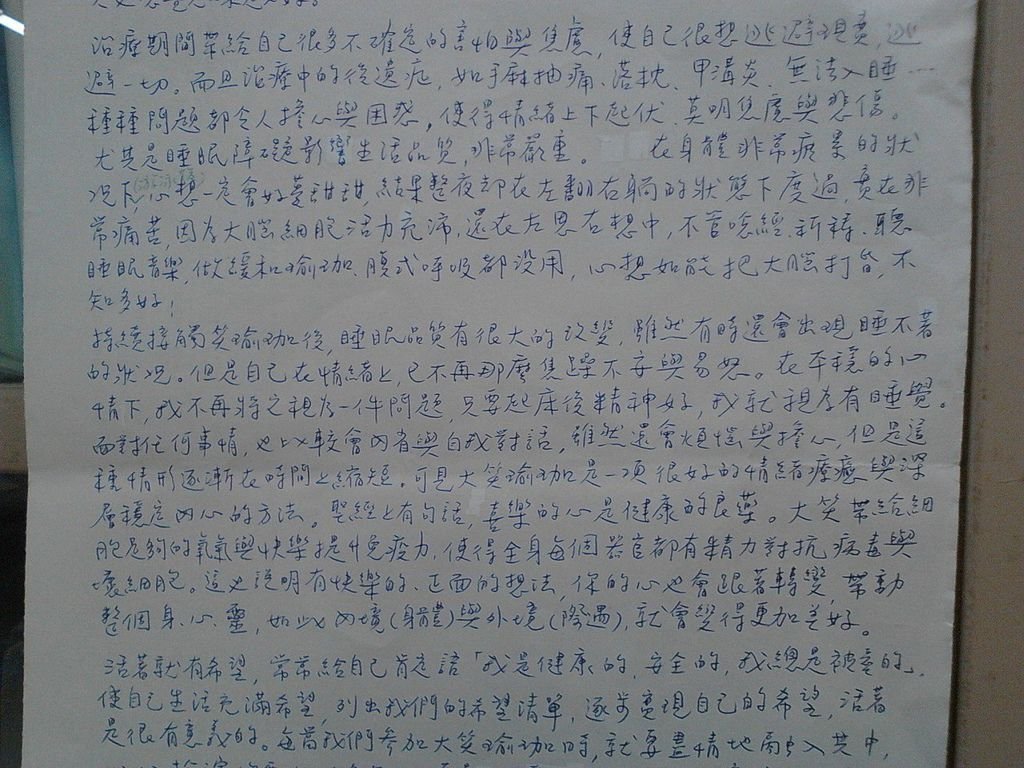 治療期間帶給自己很多不確定的害怕與焦慮,使自己很想逃避現實,逃
避一切。而且治療中的後遺症,如手麻抽痛、落枕、甲溝炎、無法入睡…
種種問題都令人擔心與困惑,使得情緒上下起伏、莫明焦慮與悲傷。
尤其是睡眠障礙影響生活品質,非常嚴重。 在身體非常疲累的狀
況下,心想一定會好夢甜甜,結果整夜卻在左翻右躺的狀態下度過,實在非
常痛苦,因為大腦細胞活力充沛,還在左思右想中,不管唸經、祈禱、聽
睡眠音樂,做緩和瑜珈、腹式呼吸都没用,心想如能把大腦打昏,不
知多好!
持續接觸笑瑜珈後,睡眠品質有很大的改變,雖然有時還會出現睡不著
的狀况。但是自己在情緒上,已不再那麼焦躁不安與易怒。在平穩的心
情下,我不再將之視為一件問題,只要起床後精神好,我就視為有睡覺。
面對任何事情,也比較會內省與自我對話,雖然還會煩惱與擔心,但是這
種情形逐漸在時間上縮短。可見大笑瑜珈是一項很好的情緒療癒與深
層穩定內心的方法。聖經上有句話,喜樂的心是健康的良藥。大笑帶給細
胞足夠的氧氣與快樂提升免疫力,使得全身每個器官都有精力對抗病毒與
壞細胞。這也說明有快樂的、正面的想法,你的心也會跟著轉變,帶動
整個身、心、靈,如此內境(身體)與外境(際遇),就會變得更加美好。
活著就有希望,常常給自己肯定語「我是健康的,安全的,我總是被愛的」,
使自己生活充滿希望,列出我們的希望清單,逐步實現自己的希望,活著
是很有意義的。每當我們參加大笑瑜珈時,就要盡情地融入其中,